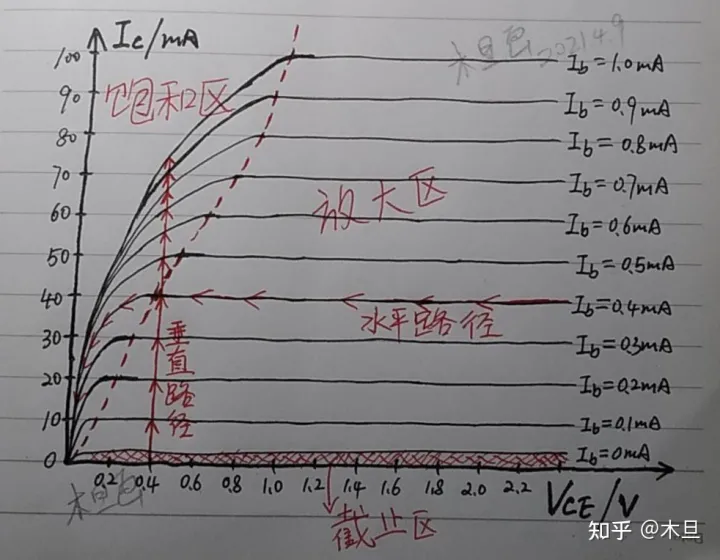 Ic/mA
木旦 2021.4.9
100
90
80
70
60
50
40
30
20
10
0
饱和区
放大区
水平路径
垂直路径
截止区
Ib=1.0mA
Ib=0.9mA
Ib=0.8mA
Ib=0.7mA
Ib=0.6mA
Ib=0.5mA
Ib=0.4mA
Ib=0.3mA
Ib=0.2mA
Ib=0.1mA
Ib=0mA
0.2 0.4 0.6 0.8 1.0 1.2 1.4 1.6 1.8 2.0 2.2
VCE/V
木旦
知乎 @木旦